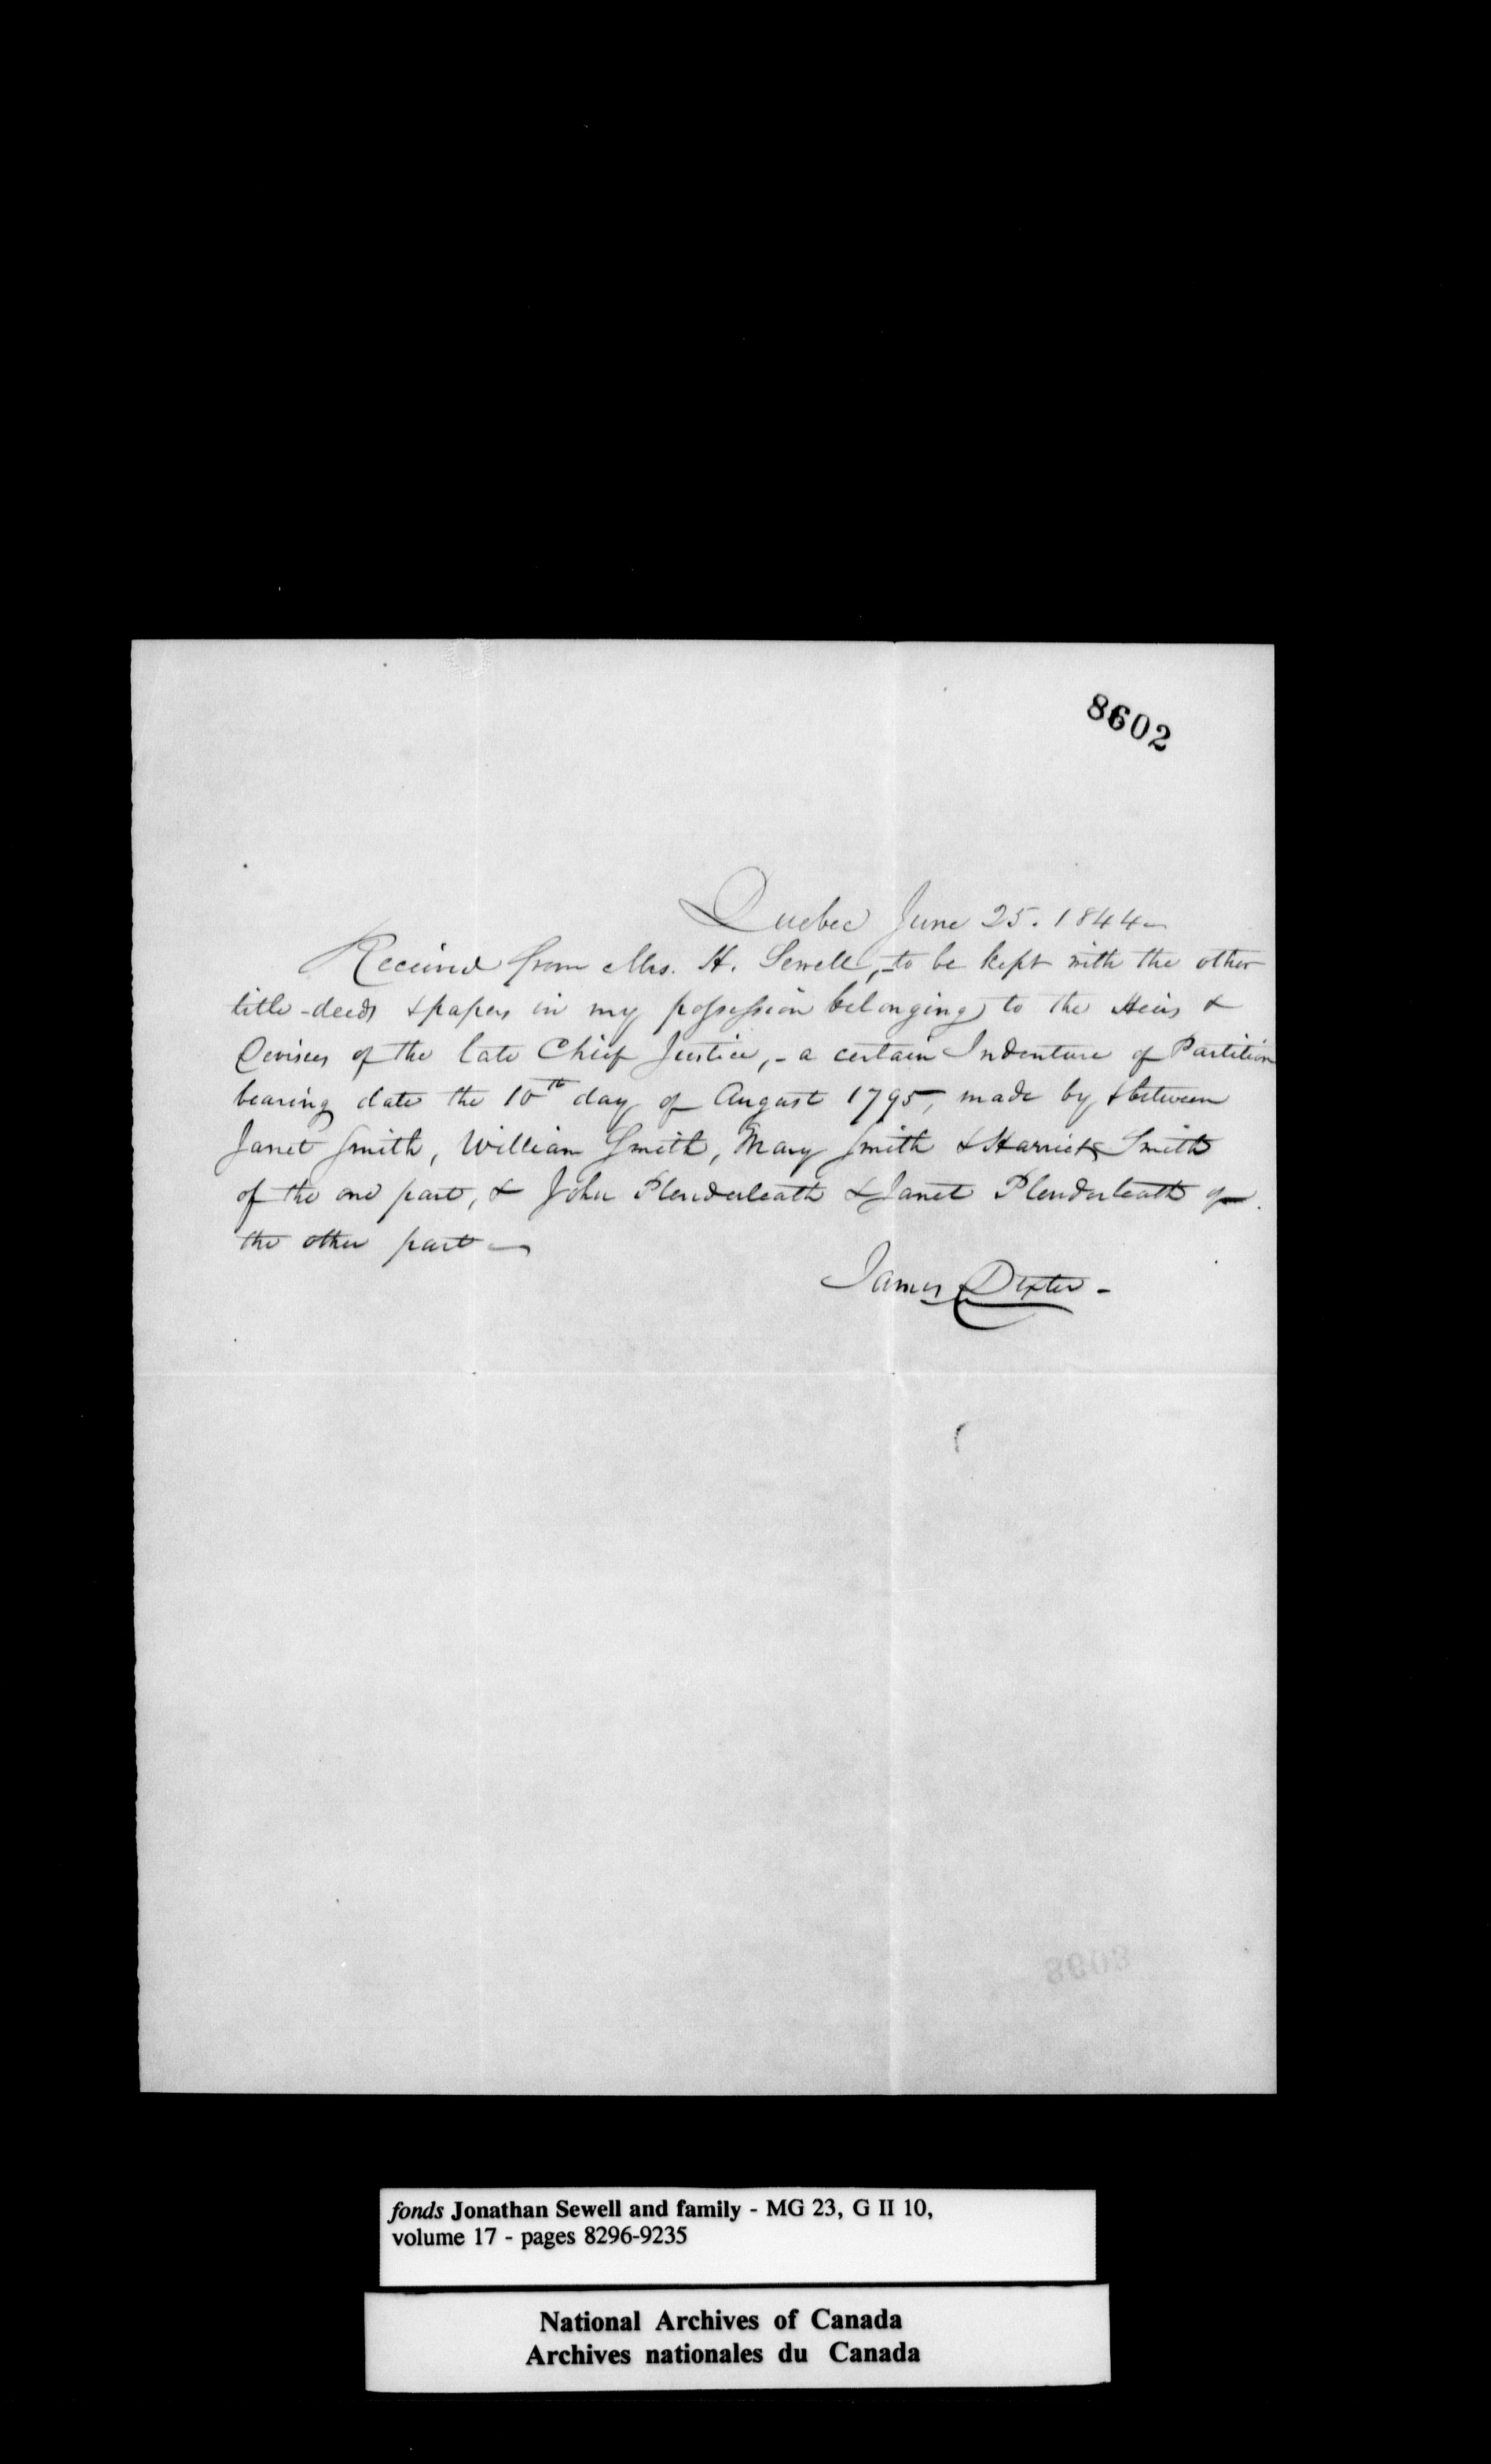 8602
Quebec June 25. 1844 -
Received from Mrs. H. Sewell, - to be kept with the other
title - deeds & papers in my possession belonging to the Heirs &
Devisees of the late Chief Justice, - a certain Indenture of Partition
bearing date the 10th day of August 1795, made by & between
Janet Smith, William Smith, Mary Smith & Harriet Smith
of the one part, & John Plenderleath & Janet Plenderleath of
the other part -
James Dexter -
8603
fonds Jonathan Sewell and family - MG 23, G II 10,
volume 17 - pages 8296-9235
National Archives of Canada
Archives nationales du Canada